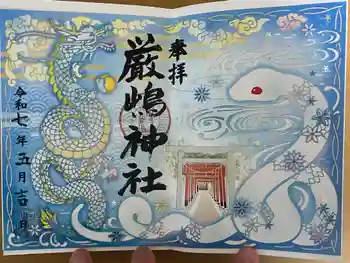 奉拝
厳嶋神社
令和七年五月吉日